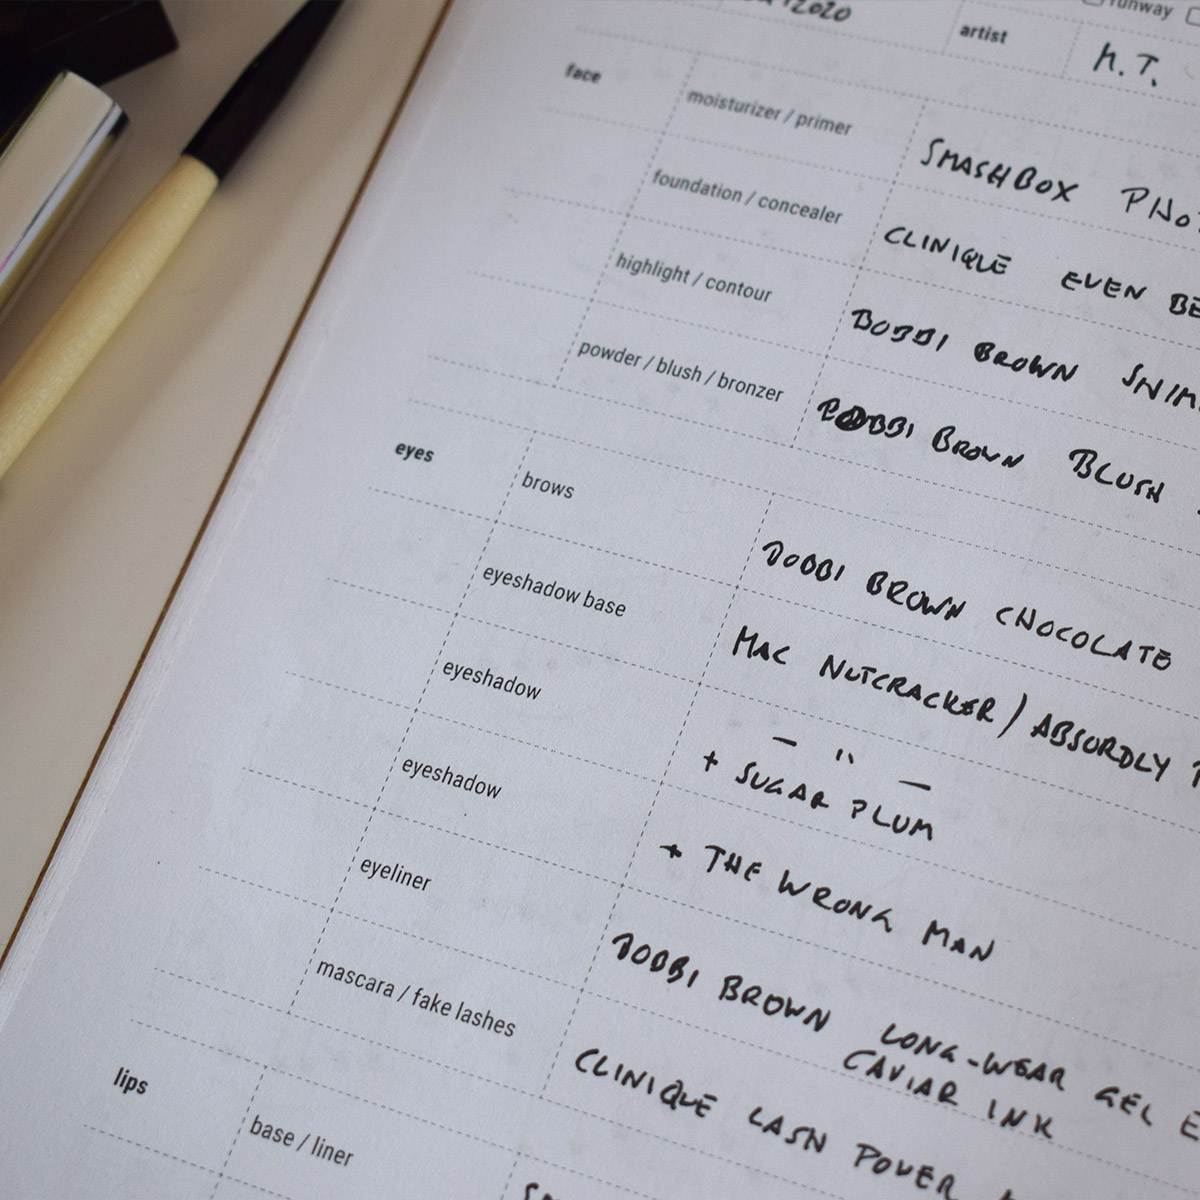 2020 runway
artist M. T.
face moisturizer / primer SMASHBOX
foundation / concealer CLINIQUE EVEN
highlight / contour BOBBI BROWN
powder / blush / bronzer BOBBI BROWN BLUSH
eyes brows BOBBI BROWN CHOCOLATE
eyeshadow base MAC NUTCRACKER / ABSURDLY
eyeshadow — " —
+ SUGAR PLUM
eyeshadow + THE WRONG MAN
eyeliner BOBBI BROWN LONG-WEAR GEL
CAVIAR INK
mascara / fake lashes CLINIQUE LASH POWER
lips base / liner